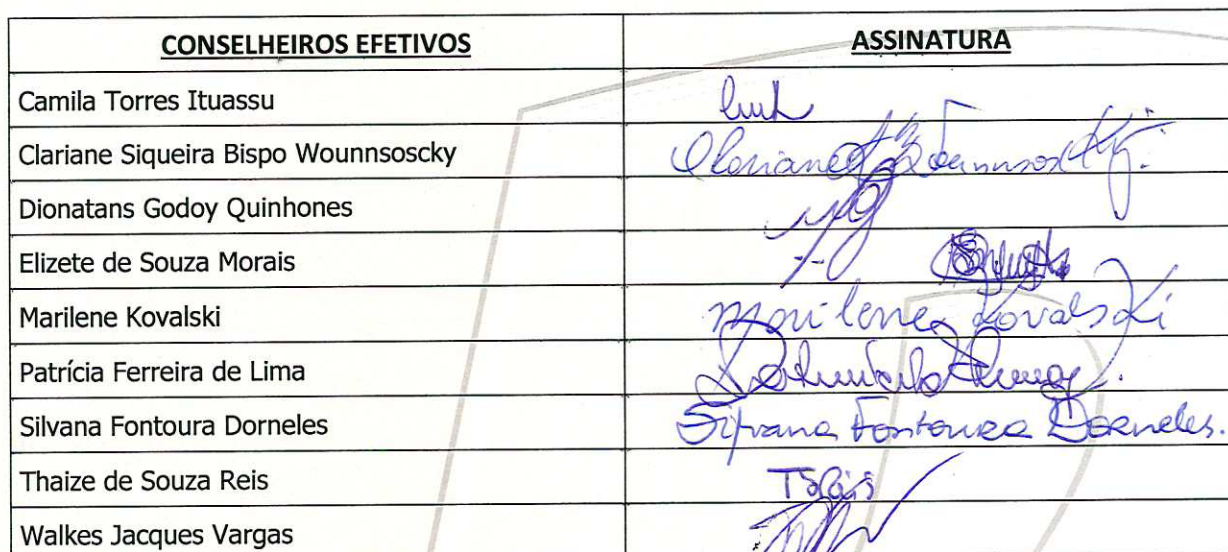 CONSELHEIROS EFETIVOS ASSINATURA
Camila Torres Ituassu
Clariane Siqueira Bispo Wounnsoscky Clariane
Dionatans Godoy Quinhones
Elizete de Souza Morais
Marilene Kovalski Marilene Kovalski
Patrícia Ferreira de Lima
Silvana Fontoura Dorneles Silvana Fontoura Dorneles.
Thaize de Souza Reis TSReis
Walkes Jacques Vargas